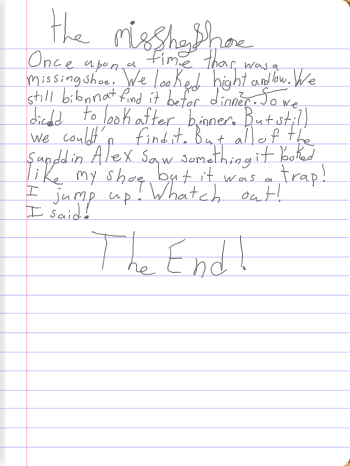 the missheg Shoe
Once upon a time thar was a
missing shoe. We looked hight and low. We
still bibnnat find it befor dinner. So we
dicdd to look after binner. But still
we couldt'n find it. But all of the
sanddin Alex saw something it looked
like my shoe but it was a trap!
I jump up! Whatch out!
I said!
The End!